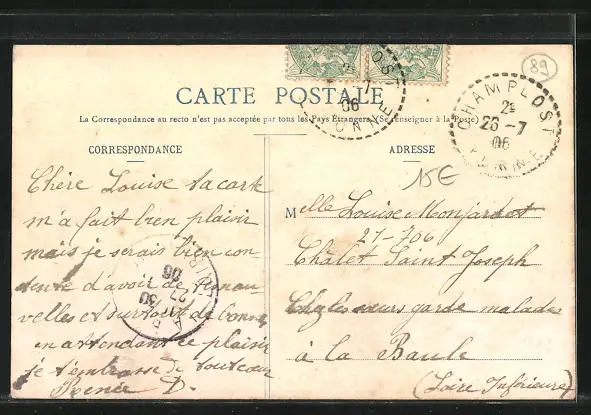 CARTE POSTALE
La Correspondance au recto n'est pas acceptée par tous les Pays Étrangers. (Se renseigner à la Poste)
CORRESPONDANCE
Chère Louise ta carte
m'a fait bien plaisir
mais je serais bien con-
tente d'avoir de tes nou-
velles et surtout de bonnes
en attendant ce plaisir
je t'embrasse de tout cœur
Renée D.
ADRESSE
15€
Melle Louise Monjardet
27-7 06
Châlet Saint Joseph
Chez les sœurs garde malades
à la Baule
(Loire Inférieure)
89
CHAMPLOST
2e
26-7
06
YONNE
06
YONNE
27
06